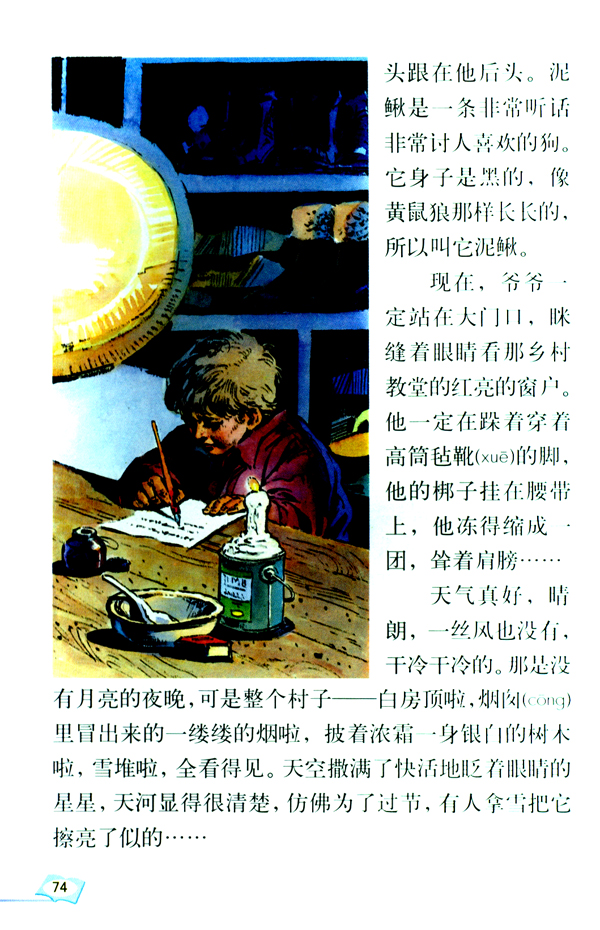 头跟在他后头。泥
鳅是一条非常听话
非常讨人喜欢的狗。
它身子是黑的，像
黄鼠狼那样长长的，
所以叫它泥鳅。
现在，爷爷一
定站在大门口，眯
缝着眼睛看那乡村
教堂的红亮的窗户。
他一定在跺着穿着
高筒毡靴(xuē)的脚，
他的梆子挂在腰带
上，他冻得缩成一
团，耸着肩膀……
天气真好，晴
朗，一丝风也没有，
干冷干冷的。那是没
有月亮的夜晚，可是整个村子——白房顶啦，烟囱(cōng)
里冒出来的一缕缕的烟啦，披着浓霜一身银白的树木
啦，雪堆啦，全看得见。天空撒满了快活地眨着眼睛的
星星，天河显得很清楚，仿佛为了过节，有人拿雪把它
擦亮了似的……
74